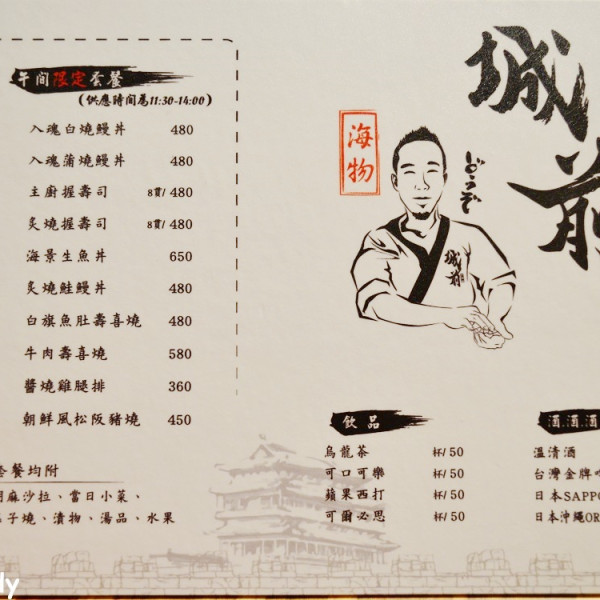 午間限定套餐
(供應時間為11:30-14:00)
入魂白燒鰻丼 480
入魂蒲燒鰻丼 480
主廚握壽司 8貫/480
炙燒握壽司 8貫/480
海景生魚丼 650
炙燒鮭鰻丼 480
白旗魚肚壽喜燒 480
牛肉壽喜燒 580
醬燒雞腿排 360
朝鮮風松阪豬燒 450
套餐均附
胡麻沙拉、當日小菜、
子燒、漬物、湯品、水果
城前
海物
どうぞ
城前
飲品
烏龍茶 杯/50
可口可樂 杯/50
蘋果西打 杯/50
可爾必思 杯/50
酒.酒.酒
溫清酒
台灣金牌
日本SAPPO
日本沖繩OR
dy